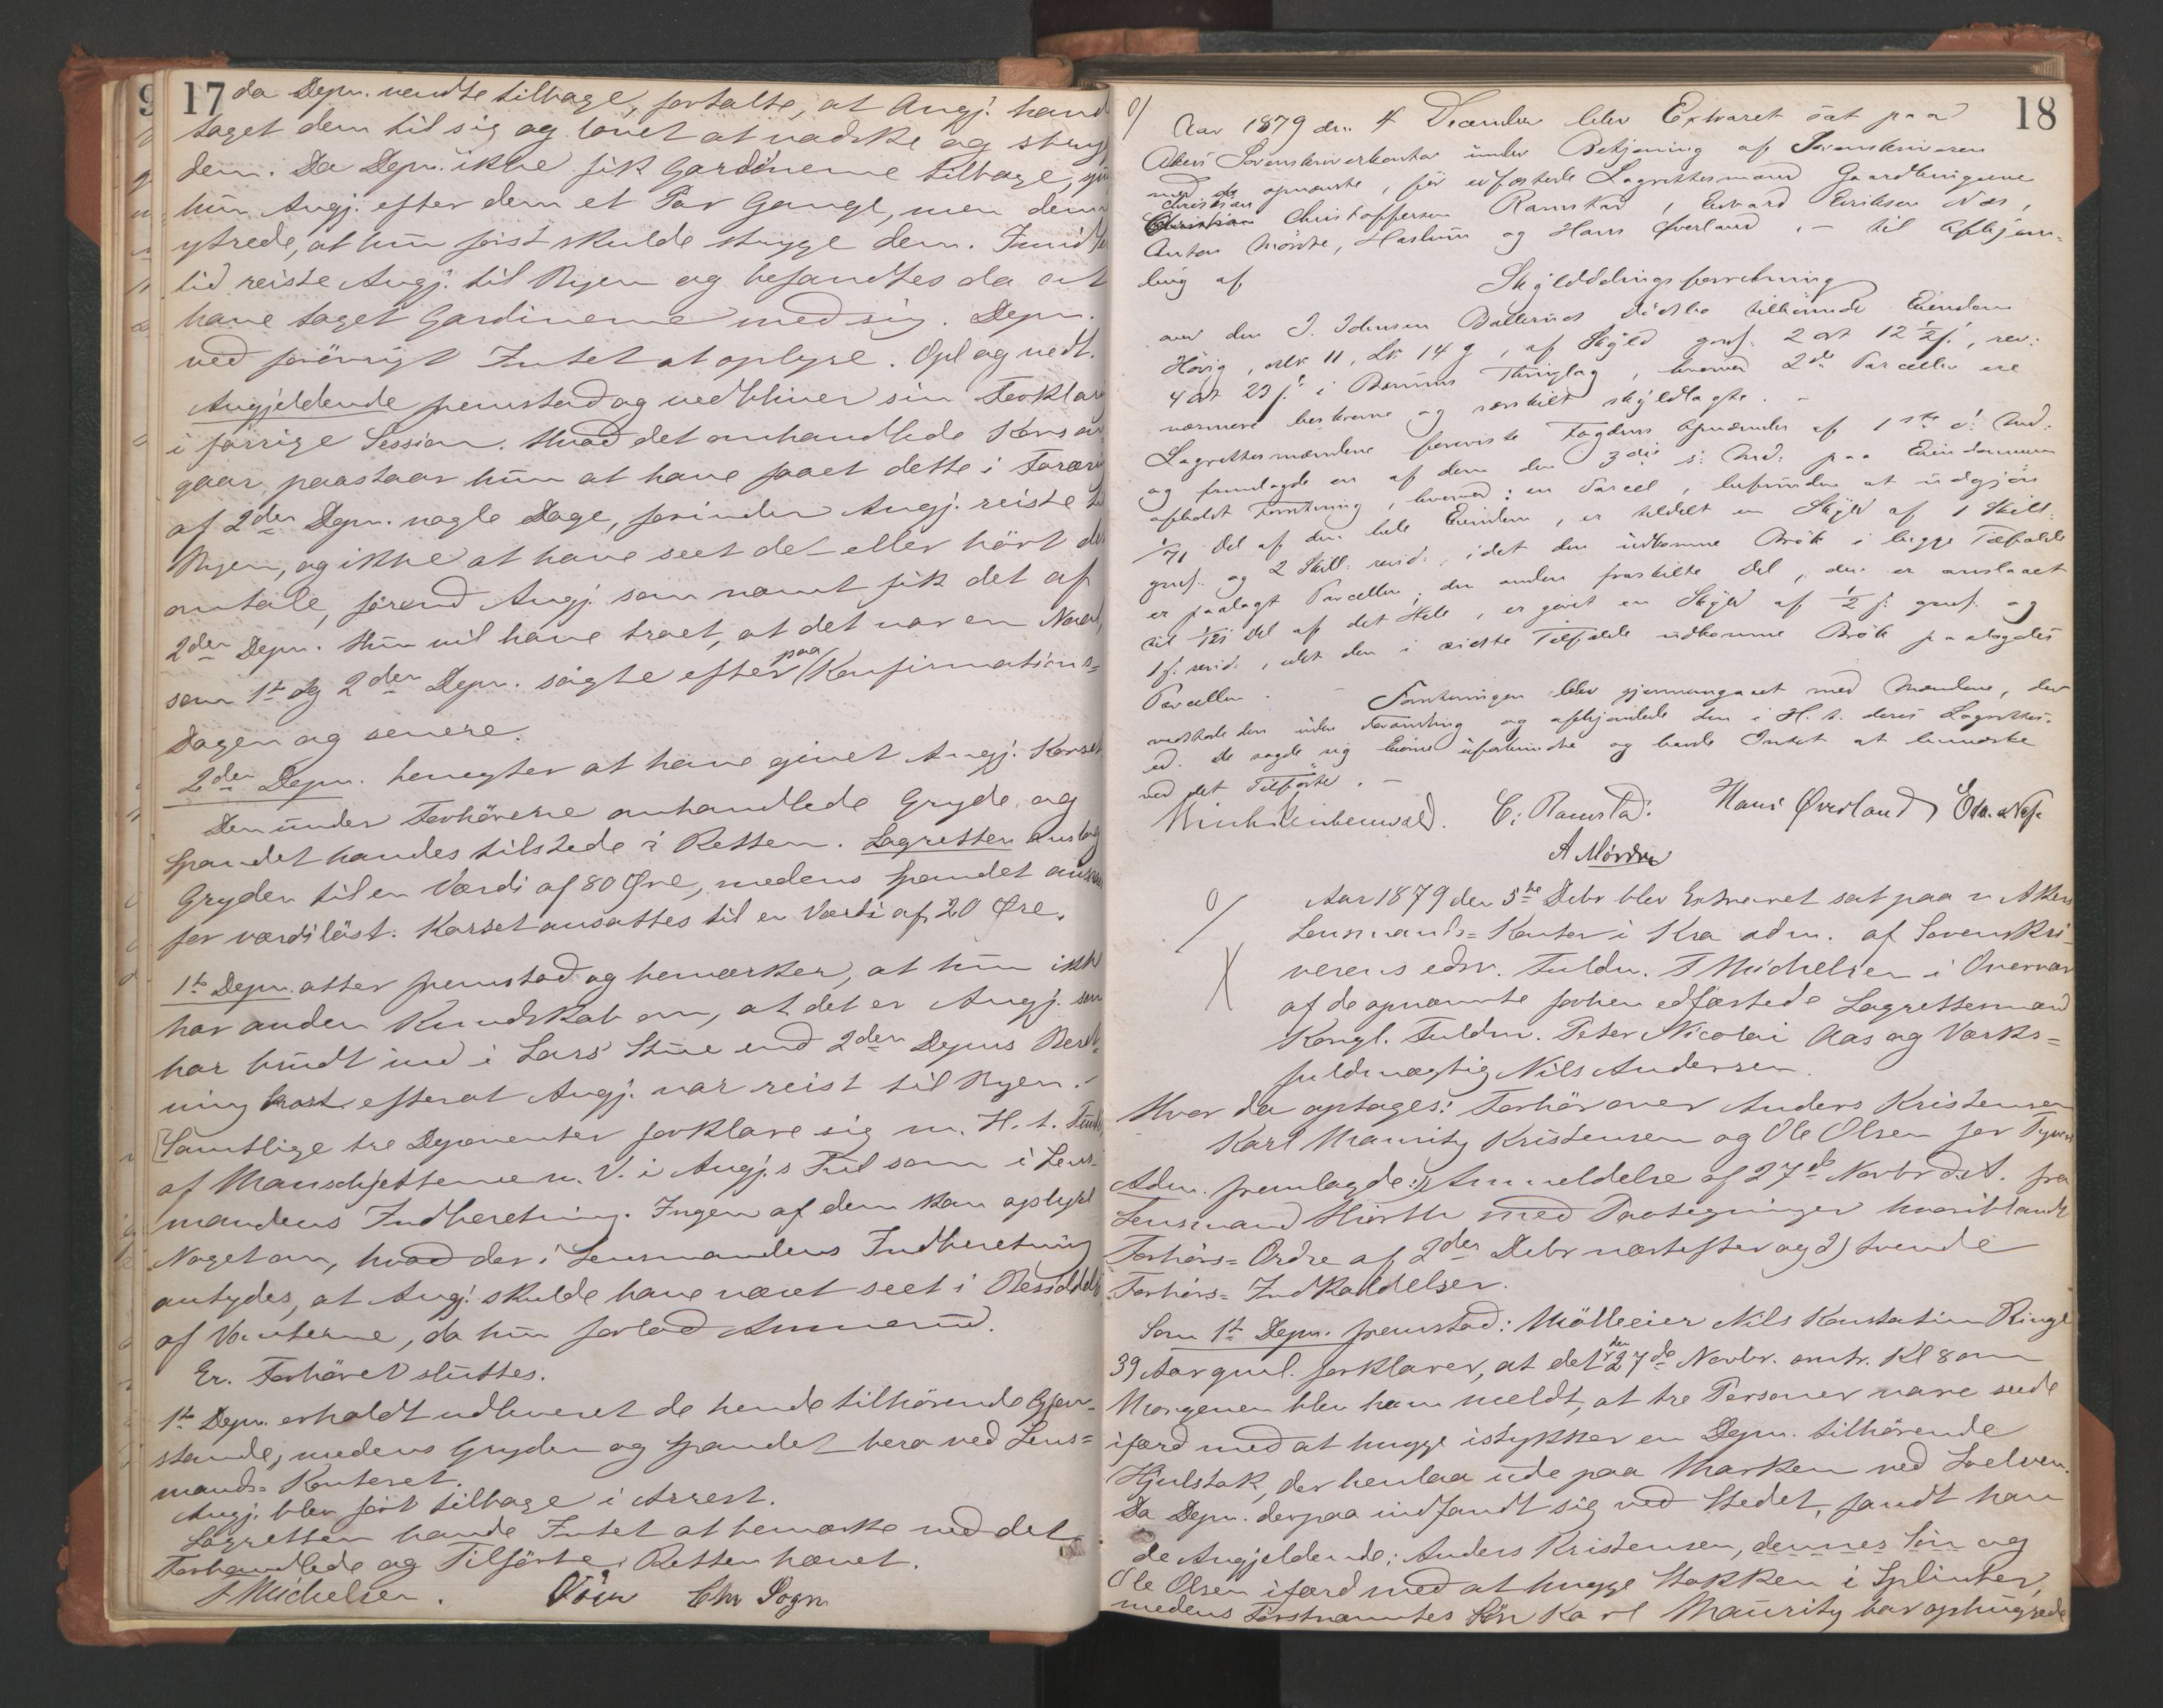 17
da Depn. vendte tilbage, fortalte, at Angj. havd
taget dem til sig og lovet at vadske og stry
dem. Da Depn. ikke fik Gardinerne tilbage,
hun Angj. efter dem et Par Gange, men denn
ytrede, at hun først skulde stryge dem. Imid
tid reiste Angj. til Ryen og befandtes da at
have taget Gardinerne med sig. Depn.
ved forövrigt Intet at oplyse. Opl og vedt.
Angjeldende fremstod og vedbliver sin Forklar
i forrige Session. Hvad det omhandlede Korset
gaar, paastaar hun at have faaet dette i Foræri
af 2den Depn. nogle Dage, forinden Angj. reiste til
Ryen, og ikke at have seet det eller hört det
omtale, förend Angj. som nævnt fik det af
2den Depn. Hun vil have troet, at det var en
som 1ste og 2den Depn. søgte efter paa Konfirmations-
Dagen og senere.
2den Depn. benegter at have givet Angj. Korset
Den under Forhörene omhandlede Gryde og
Spandet havdes tilstede i Retten. Lagretten anslog
Gryden til en Værdi af 80 Øre, medens Spandet ansaa
for værdilöst. Korset ansattes til en Værdi af 20 Øre.
1ste Depn. atter fremstod og bemærker, at hun ikke
har anden Kundskab om, at det er Angj. som
har brudt ind i Lars' Stue end 2den Depns Beret-
ning herom efterat Angj. var reist til Ryen.
Samtlige tre Deponenter forklare sig m. H. t.
af Manschjetterne m. V. i Angj.s som i Lens-
mandens Indberetning. Ingen af dem kan oplyse
Noget om, hvad der i Lensmandens Indberetning
antydes, at Angj. skulde have været seet i Besiddelse
af Vanterne, da hun forlod
Er. Forhöret sluttes.
1ste Depn. erholdt udleveret de hende tilhörende Gjen-
stande, medens Gryden og Spandet bero ved Lens-
mands-Kontoret.
Angj. blev fört tilbage i Arrest.
Lagretten havde Intet at bemærke ved det
Forhandlede og Tilförte. Retten hævet.
T Michelsen. Chr Sogn
18
Aar 1879 den 4 December blev Extraret sat paa
Akers Sorenskriverkontor under Betjening af Sorenskriveren
med de opnævnte, før edfæstede Lagrettesmænd Gaardbrugerne
Christian Christoffersen Ramstad, Edvard Eriksen Næs,
Anton Mørdre, Haslum og Hans Øverland, – til Afhjem-
ling af
Skylddelingsforretning
over den J. Johnsen Ballerud Dödsbo tilhörende Eiendom
Hövig, M.Nr 11, L.Nr 14 g, af Skyld gml. 2 ort 12 1/2 ſ, rev.
4 ort 23 ſ i Bærums Thinglag, hvorved 2de Parceller ere
nærmere beskrevne og særskilt skyldlagte. –
Lagrettesmændene foreviste Fogdens Opnævnelse af 1ste d. Md.
og fremlagde en af dem den 3die s. Md. paa Eiendommen
afholdt Forretning, hvorved: en Parcel, befunden at udgjöre
1/71 Del af den hele Eiendom, er tildelt en Skyld af 1 Skill.
gml. og 2 Skill. revid., idet den udkomne Brök i begge Tilfælde
er paalagt Parcellen; den anden fraskilte Del, der er anslaaet
til Del af det Hele, er givet en Skyld af 1/2 ſ. gml. og
1 ſ. revid., idet den i sidste Tilfælde udkomne Brök paalagdes
Parcellen. – Forretningen blev gjennemgaaet med Mændene, der
vedstode den uden Forandring og afhjemlede den i H. t. deres Lagrettes-
ed. De sagde sig Eierne uforbundne og havde Intet at bemærke
ved det Tilførte. –
C. Ramstad. Hans Øverland Edv. Næs.
A Mørdre
Aar 1879 den 5te Debr blev Extraret sat paa Akers
Lensmands-Kontor i Kra adm. af Sorenskri-
verens edsv. Fuldm. T Michelsen i Overvær
af de opnævnte forhen edfæstede Lagrettesmænd
Kongl. Fuldm. Peter Nicolai Aas og Værks-
fuldmægtig Nils Andersen.
Hvor da optoges: Forhör over Anders Kristensen
Karl Mauritz Kristensen og Ole Olsen for Tyveri
Adm. fremlagde: 1) Anmeldelse af 27de Novbr d. A. fra
Lensmand Hiorth med Paategninger hvoriblandt
Forhörs-Ordre af 2den Debr næstefter og 2) tvende
Forhörs-Indkaldelser.
Som 1ste Depn. fremstod: Mölleeier Nils Konstatin Ringe
39 Aar gml. forklarer, at det den 27de Novbr. omtr. Kl 8 om
Morgenen blev ham meldt, at tre Personer vare seede
ifærd med at hugge istykker en Depn. tilhörende
Hjulstok, der henlaa ude paa Marken ved Loelven.
Da Depn. derpaa indfandt sig ved Stedet, fandt han
de Angjeldende: Anders Kristensen, dennes Sön og
Ole Olsen ifærd med at hugge Stokken i Splinter,
medens Förstnævntes Sön Karl Mauritz bar ophuggede